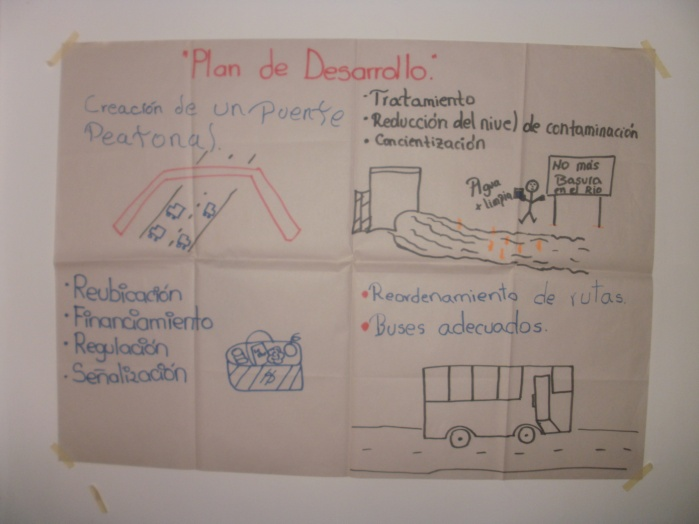 "Plan de Desarrollo."
Creación de un Puente
Peatonal.
• Tratamiento
• Reducción del nivel de contaminación
• Concientización
Agua
+ limpia
No más
Basura
en el Río
• Reubicación
• Financiamiento
• Regulación
• Señalización
• Reordenamiento de rutas.
• Buses adecuados.